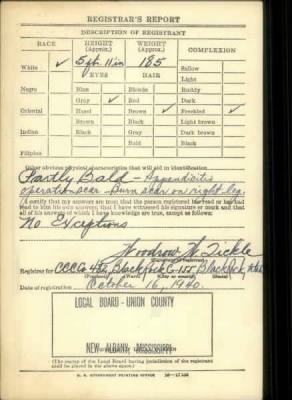 REGISTRAR'S REPORT
DESCRIPTION OF REGISTRANT
RACE HEIGHT (Approx.) WEIGHT (Approx.) COMPLEXION
White ✓ 5 ft. 11 in 185 Sallow
EYES HAIR Light
Negro Blue Blonde Ruddy
Gray ✓ Red Dark
Oriental Hazel Brown ✓ Freckled ✓
Brown Black Light brown
Indian Black Gray Dark brown
Bald Black
Filipino
Other obvious physical characteristics that will aid in identification
Partly Bald - Appendicitis
operation scar - Burn scar on right leg.
I certify that my answers are true; that the person registered has read or has had
read to him his own answers; that I have witnessed his signature or mark and that
all of his answers of which I have knowledge are true, except as follows:
No Exceptions
Woodrow W. Tickle
(Signature of registrar)
Registrar for CCC Co Black Jack
(Precinct) (Ward) (City or county) (State)
Date of registration October 16, 1940.
LOCAL BOARD - UNION COUNTY
NEW ALBANY, MISSISSIPPI
(The stamp of the Local Board having jurisdiction of the registrant
shall be placed in the above space.)
U. S. GOVERNMENT PRINTING OFFICE